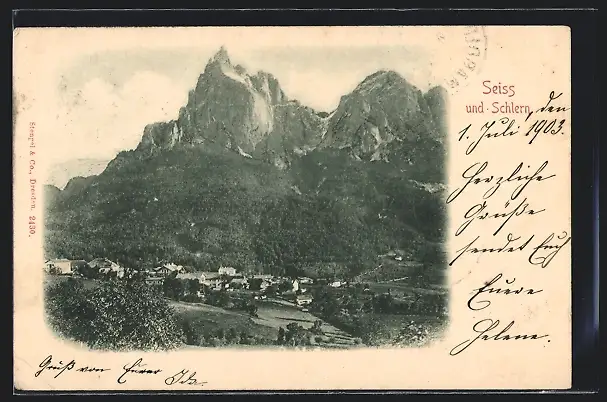 Seiss
und Schlern, den
1. Juli 1903.
Herzliche
Grüße
sendet Euch
Euere
Helene.
Gruß von Eurer Ida.
Stengel & Co., Dresden. 2430.